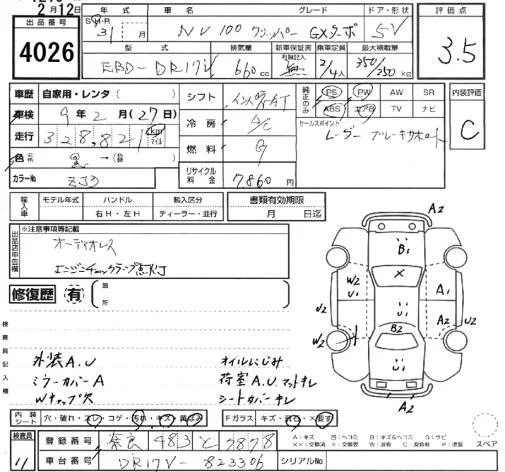 2月12日
出品番号
4026
年式 車名 グレード ドア・形状
S・H・R 31 月 NV100 クリッパー GXターボ 5V
型式 排気量 新車保証書 有無記入 乗車定員 最大積載量
EBD-DR17V 660cc 無 2/4人 350/250kg
評価点
3.5
車歴 自家用・レンタ( )
車検 9年2月(27日)
走行 32,882 km マイル
色 元色 黒 →( )
カラーNo. ZJ3
シフト インパネAT
冷房 A/C
燃料 G
リサイクル料金 7860円
純正のみ PS PW AW SR
ABS エアB TV ナビ
セールスポイント
レーダーブレーキサポート
内装評価
C
輸入車 モデル年式 ハンドル 輸入区分
年 右H・左H ディーラー・並行
書類有効期限
月 日迄
出品店申告欄
※注意事項等記載
オーディオレス
エンジンチェックランプ点灯
修復歴 有
箇所
検査員記入欄
外装A.U オイルにじみ
ミラーカバーA 荷室A.U.マットキレ
Wチョップ穴 シートカバーキレ
A2
B1
X
W2
U1
A1
U2
A2
U2
W2
B2
U1
A2
内装シート 穴・破れ・スレ・コゲ・汚れ・キズ・黄ばみ
Fガラス キズ・飛石・×要す
検査員
11
登録番号 奈良 483 と 2878
車台番号 DR17V-823306
シリアルNo.
A:キズ U:凹 B:キズ&凹 S:サビ
××:交換済 X:要交換 W:波 C:腐食 P:塗装
スペア